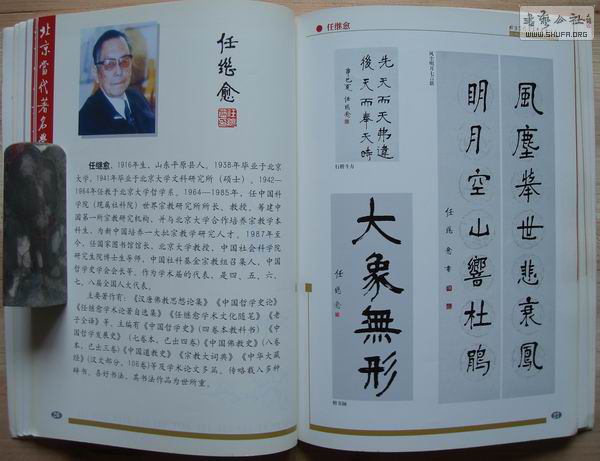 北京當代著名學
任继愈
任继愈，1916年生，山东平原县人。1938年毕业于北京
大学，1941年毕业于北京大学文科研究所（硕士）。1942—
1964年任教于北京大学哲学系。1964—1985年，任中国科
学院（现属社科院）世界宗教研究所所长、教授，筹建中
国第一所宗教研究机构，并与北京大学合作培养宗教学本
科生，为新中国培养一大批宗教学研究人才。1987年至
今，任国家图书馆馆长，北京大学教授，中国社会科学院
研究生院博士生导师，中国社科基金宗教组召集人，中国
哲学史学会会长等。作为学术届的代表，是四、五、六、
七、八届全国人大代表。
主要著作有：《汉唐佛教思想论集》《中国哲学史论》
《任继愈学术论著自选集》《任继愈学术文化随笔》《老
子全译》等，主编有《中国哲学史》（四卷本教科书）《中
国哲学发展史》（七卷本，已出四卷）《中国佛教史》（八卷
本，已出三卷）《中国道教史》《宗教大词典》《中华大藏
经》（汉文部分，106卷）等及学术论文多篇。传略载入多种
辞书。喜好书法，其书法作品为世所重。
26
● 任继愈
先天而天弗違
後天而奉天時
辛巳夏 任继愈
行楷斗方
大象無形
任继愈
風塵舉世悲衰鳳
明月空山響杜鵑
任继愈書
27
WWW.SHUFA.ORG